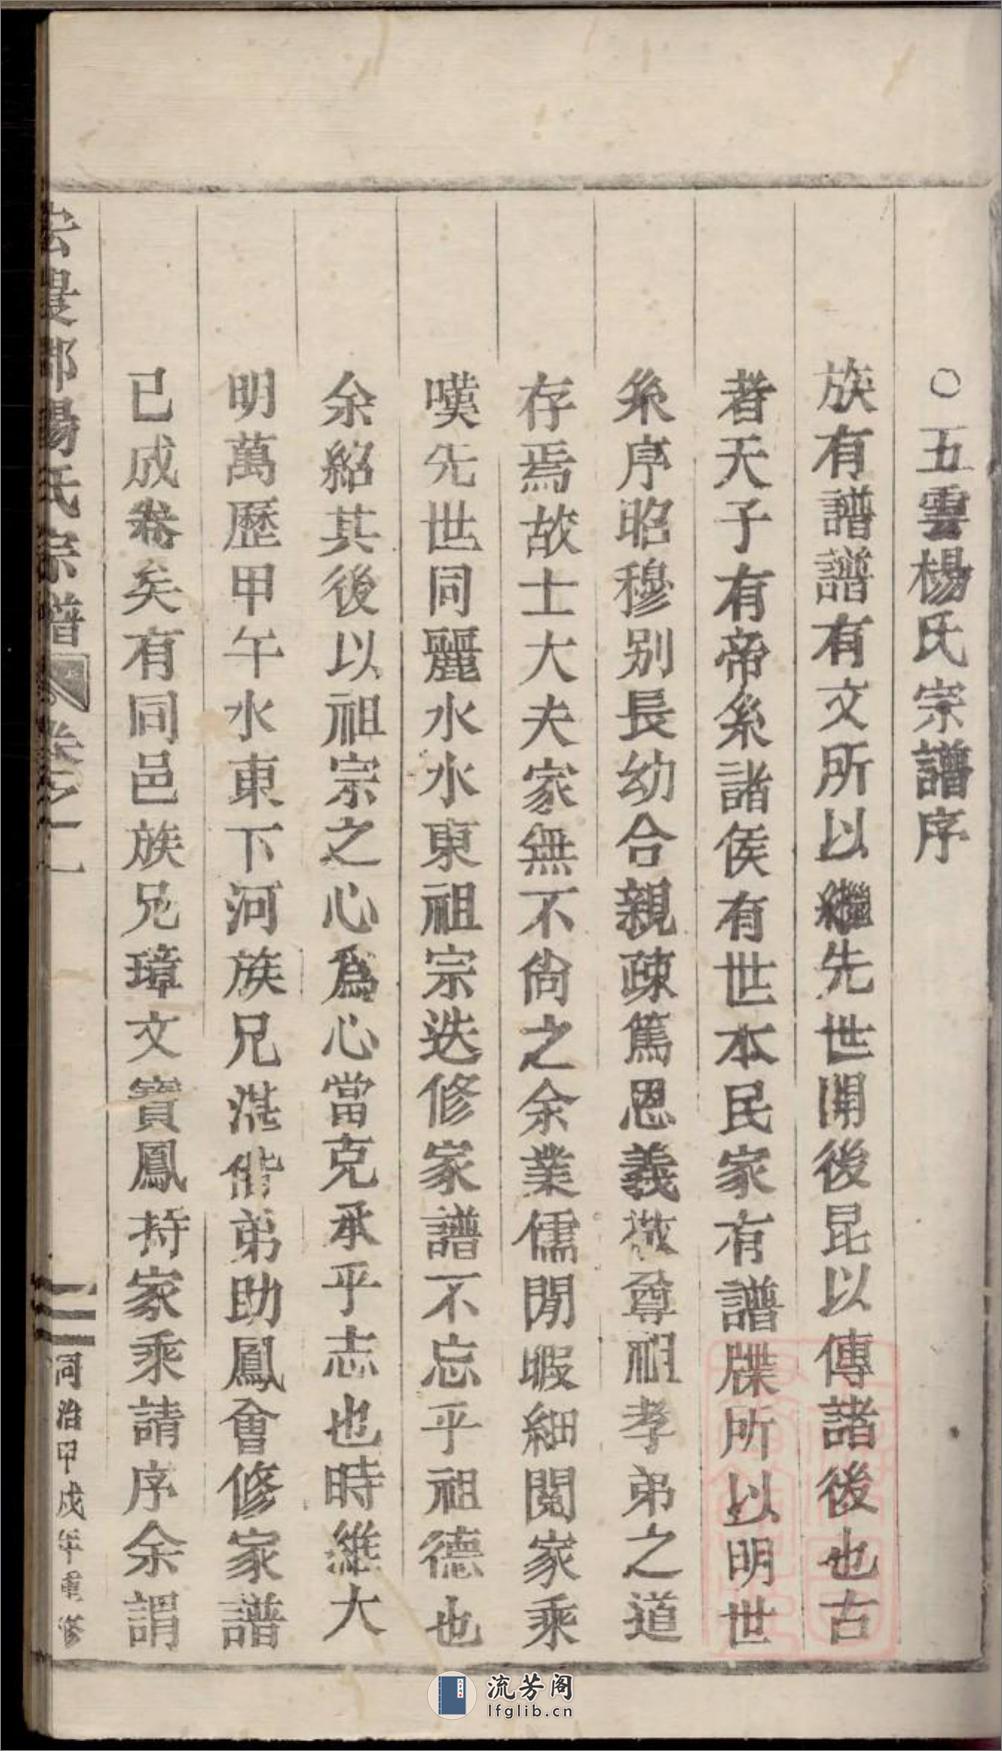 ○五雲楊氏宗譜序
族有譜譜有文所以繼先世開後昆以傳諸後也古
者天子有帝系諸侯有世本民家有譜牒所以明世
系序昭穆别長幼合親疎篤恩義敬尊祖孝弟之道
存焉故士大夫家無不尙之余業儒閒暇細閱家乘
嘆先世同麗水水東祖宗迭修家譜不忘乎祖德也
余紹其後以祖宗之心爲心當克承乎志也時維大
明萬歷甲午水東下河族兄湛偕弟助鳳會修家譜
已成卷矣有同邑族兄璋文寶鳳持家乘請序余謂
郡楊氏宗譜 卷之一
同治甲戌年重修
流芳阁
lfglib.cn